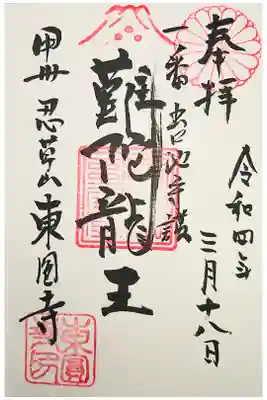 奉拝
令和四年
三月十八日
一番 出口池守護
難陀龍王
甲州 忍草山 東圓寺